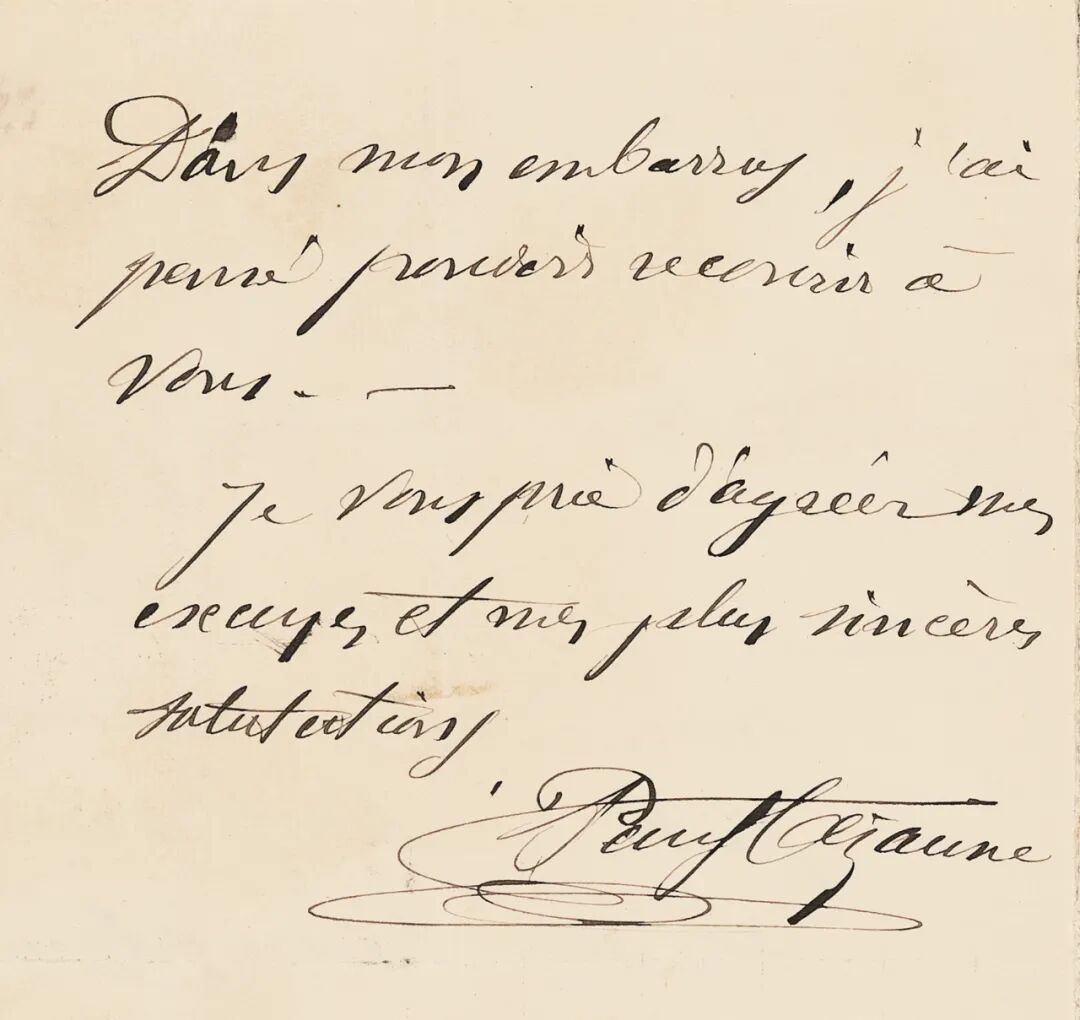 Dans mon embarras, j'ai
pensé pouvoir recourir à
vous. —
Je vous prie d'agréer mes
excuses et mes plus sincères
salutations
Paul Cézanne